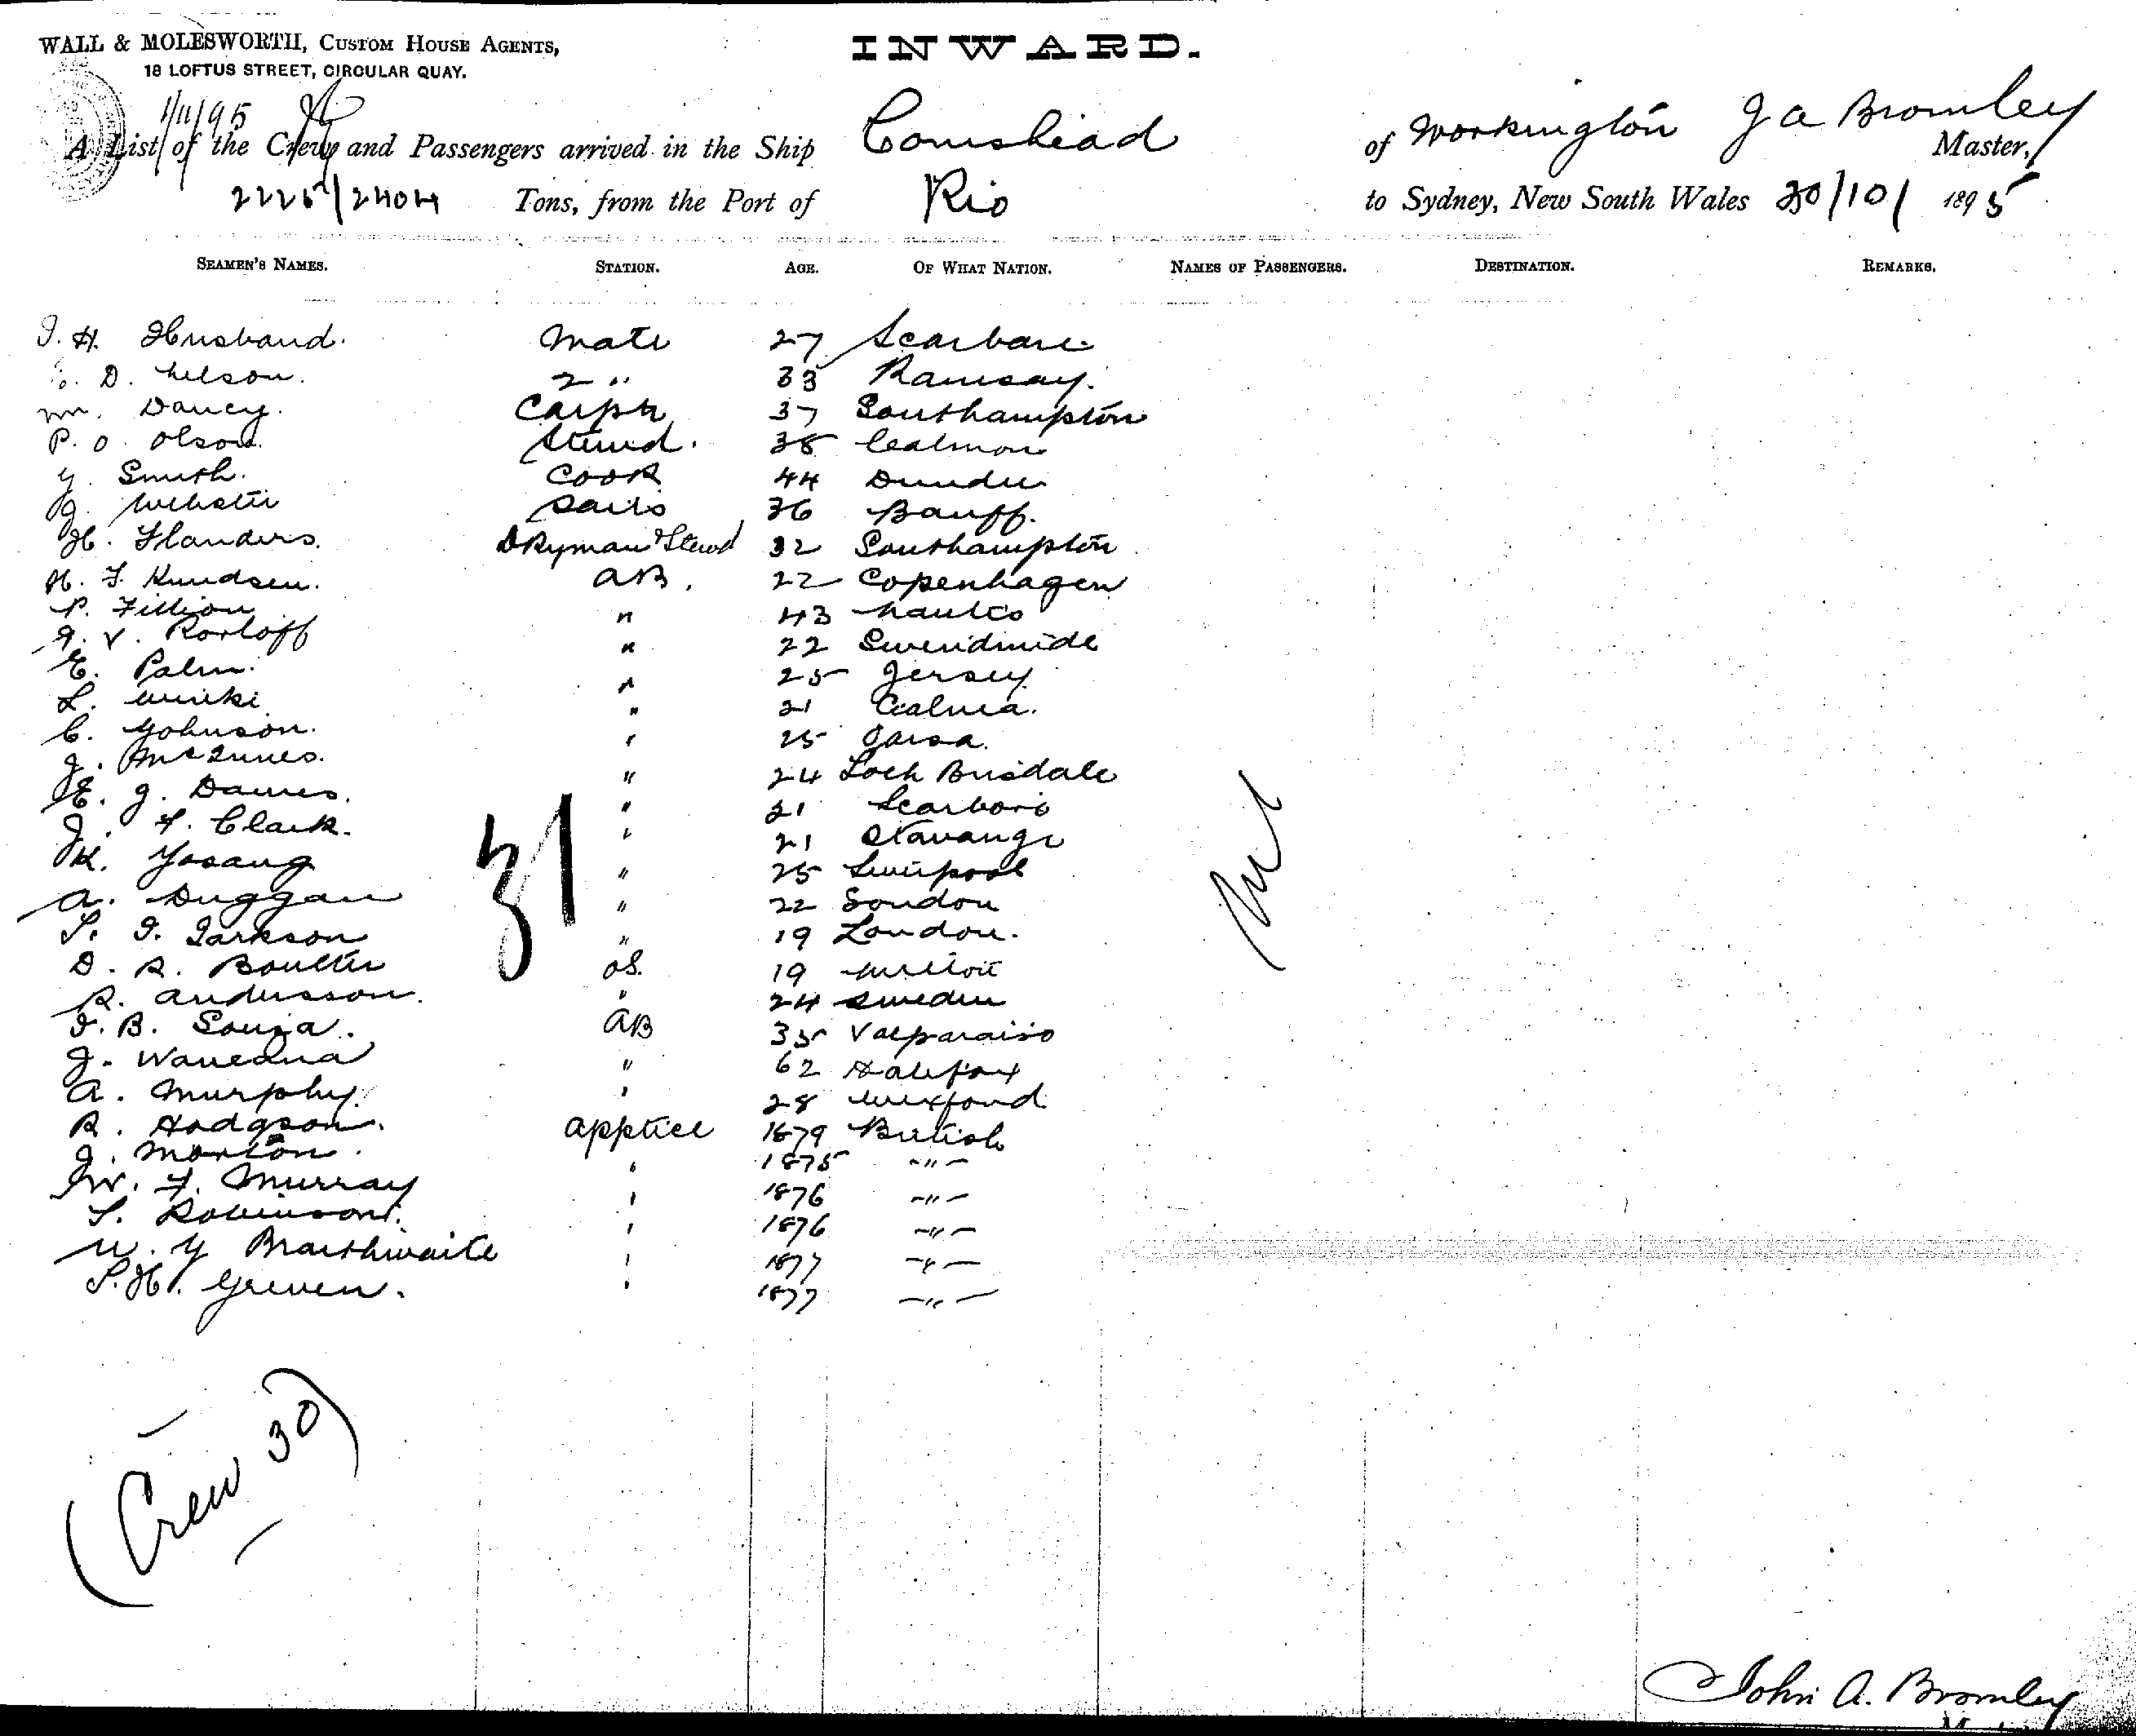 WALL & MOLESWORTH, CUSTOM HOUSE AGENTS,
18 LOFTUS STREET, CIRCULAR QUAY.
INWARD.
1/11/95
A List of the Crew and Passengers arrived in the Ship Comshead of Workington J A Bromley Master,
2225/2404 Tons, from the Port of Rio to Sydney, New South Wales 30/10/ 1895
SEAMEN'S NAMES. STATION. AGE. OF WHAT NATION. NAMES OF PASSENGERS. DESTINATION. REMARKS.
J. H. Husband. Mate 27 Scarboro
D. Nelson. 2 " 33 Ramsay.
Wm. Dancy. Carptr 37 Southampton
P. O. Olson. Stewd. 38 Calmon
G. Smith. Cook 44 Dundee
J. Webster Sails 36 Banff.
H. Flanders. DKyman & Stewd 32 Southampton
H. J. Knudsen. AB. 22 Copenhagen
P. Fillion " 43 Nantes
V. Rorloff " 22 Swenidmide
E. Palm. " 25 Jersey
L. Winke " 21 Calmia.
C. Johnson. " 25 Oarsa.
J. McInnes. " 24 Loch Boisdale
E. J. Dawes. " 21 Scarboro
J. F. Clark. " 21 Stavanger
K. Josang " 25 Liverpool
A. Duggan " 22 London
S. J. Jackson " 19 London.
D. R. Boulter OS. 19 Milton
R. Andersson. " 24 Sweden
J. B. Souza. AB 35 Valparaiso
J. " 62 Halifax
A. Murphy. " 28 Wexford
R. Hodgson. Apptice 1879 British
J. Morton. " 1875 -"-
W. F. Murray " 1876 -"-
S. Robinson. " 1876 -"-
W. G Braithwaite " 1877 -"-
S. H. Greven. " 1877 -"-
31
Nil
(Crew 30)
John A. Bromley